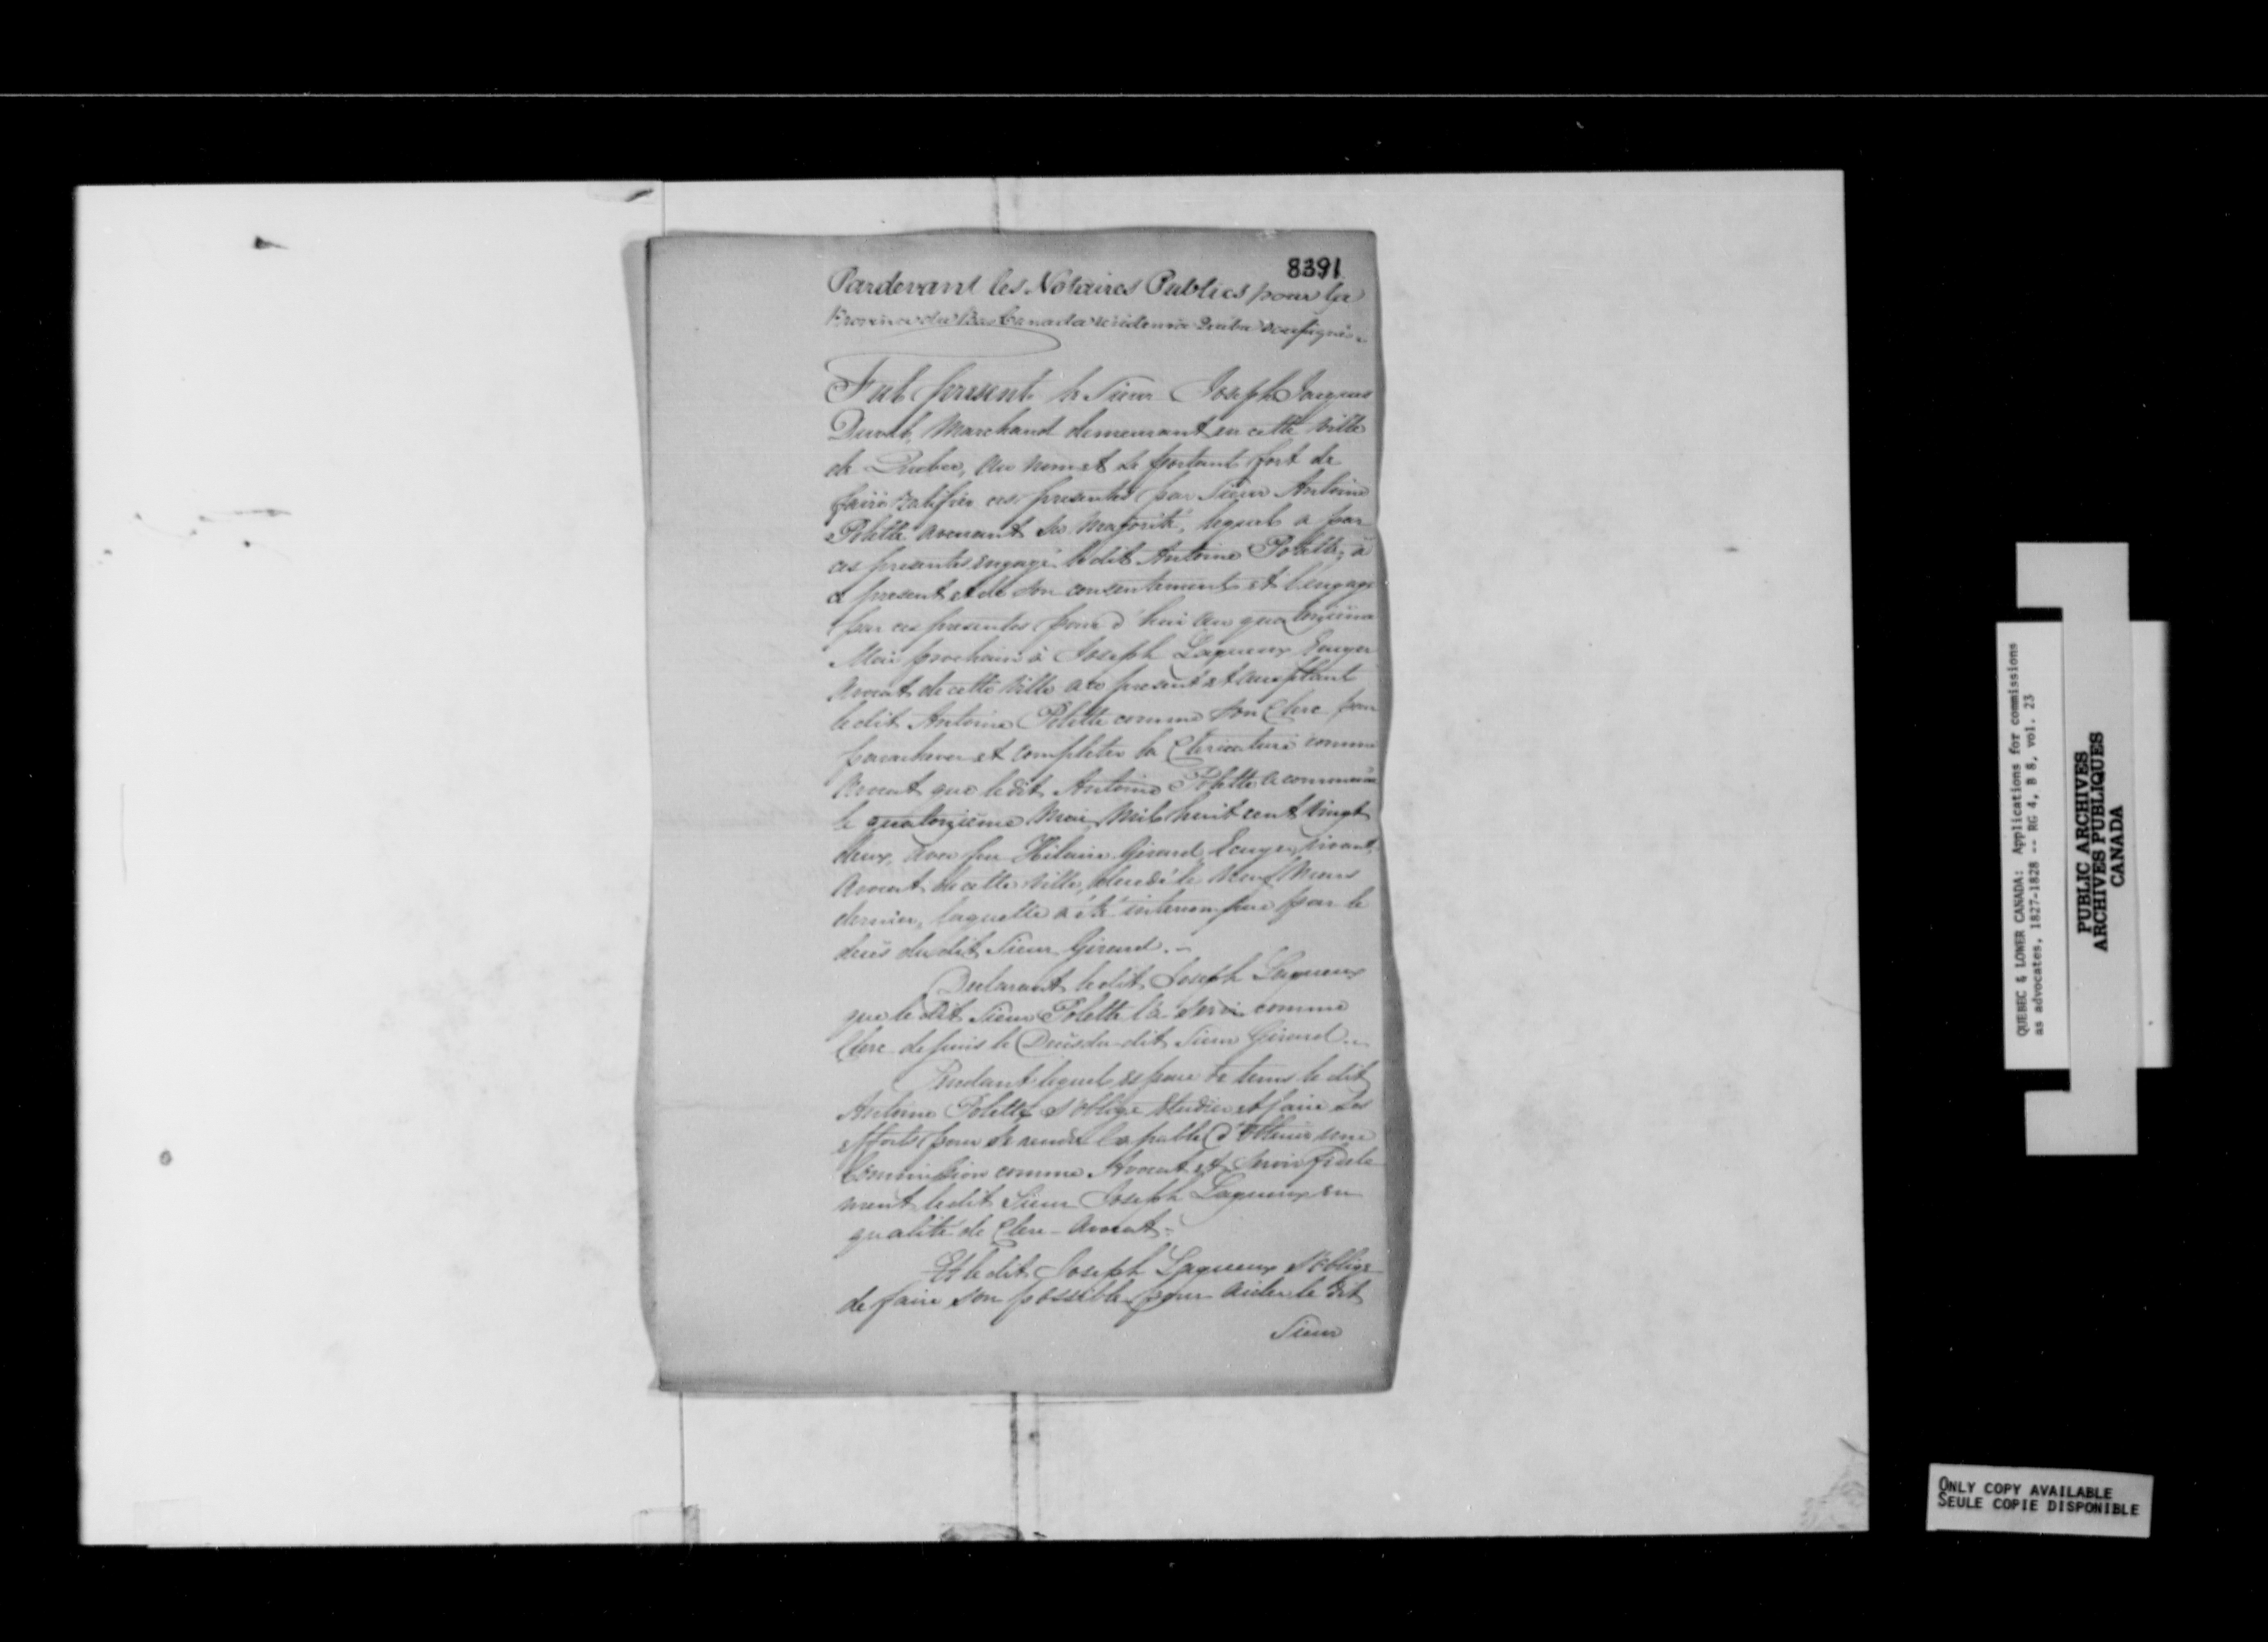 8391
Pardevant les Notaires Publics pour la
Province du Bas Canada residens à Quebec soussignés.
Fut present le Sieur Joseph Jacques
Duval, Marchand demeurant en cette ville
de Quebec, au nom et se portant fort de
faire ratifier ces presentes par Sieur Antoine
Polette avenant sa Majorité, lequel a par
ces presentes engagé le dit Antoine Polette, à
ce present et de son consentement et l'engage
par ces presentes pour d'hui au quatorzieme
Mai prochain à Joseph Lagueux Ecuyer
Avocat de cette ville a ce present et acceptant
le dit Antoine Polette comme son Clerc pour
parachever et completer sa Clericature comme
Avocat que le dit Antoine Polette a commencée
le quatorzieme Mai Mil huit cent vingt
deux, avec feu Hilaire Girard Ecuyer, vivant,
Avocat de cette ville, decedé le Neuf Mars
dernier, laquelle a été interrompue par le
decès du dit Sieur Girard.-
Declarant le dit Joseph Lagueux
que le dit Sieur Polette l'a servi comme
Clerc depuis le Decès du-dit Sieur Girard.-
Pendant lequel espace de tems le dit
Antoine Polette s'oblige etudier et faire ses
efforts pour se rendre Capable d'Obtenir une
Commission comme Avocat et Servir Fidele
ment le dit Sieur Joseph Lagueux en
qualité de Clerc-Avocat.-
Et le dit Joseph Lagueux s'Oblige
de faire son possible pour aider le dit
Sieur
QUEBEC & LOWER CANADA: Applications for commissions
as advocates, 1827-1828 -- RG 4, B 8, vol. 23
PUBLIC ARCHIVES
ARCHIVES PUBLIQUES
CANADA
ONLY COPY AVAILABLE
SEULE COPIE DISPONIBLE